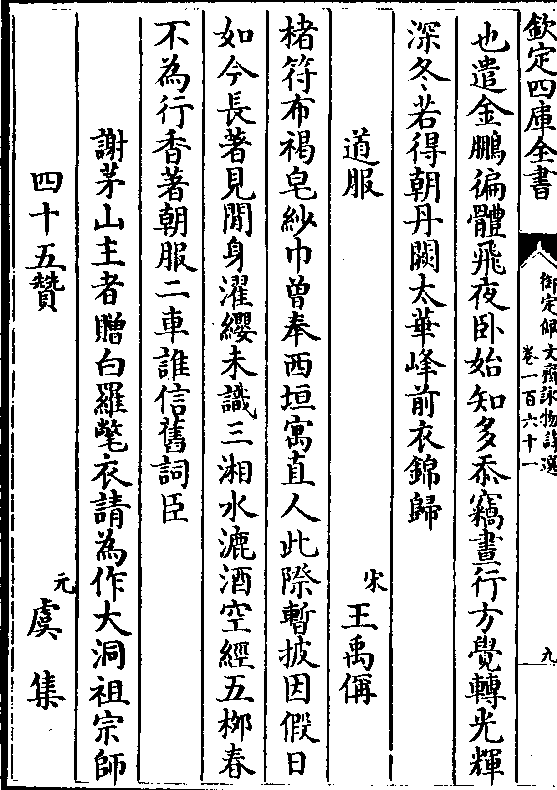 欽定四庫全書
御定佩文齋詠物詩選
卷一百六十一
九
也遣金鵬徧體飛夜卧始知多忝竊晝行方覺轉光輝
深冬若得朝丹闕太華峰前衣錦歸
道服
宋王禹偁
楮符布褐皂紗巾曾奉西垣寓直人此際暫披因假日
如今長著見閒身濯纓未識三湘水漉酒空經五栁春
不為行香著朝服二車誰信舊詞臣
謝茅山主者贈白羅氅衣請為作大洞祖宗師
四十五贊
元虞集